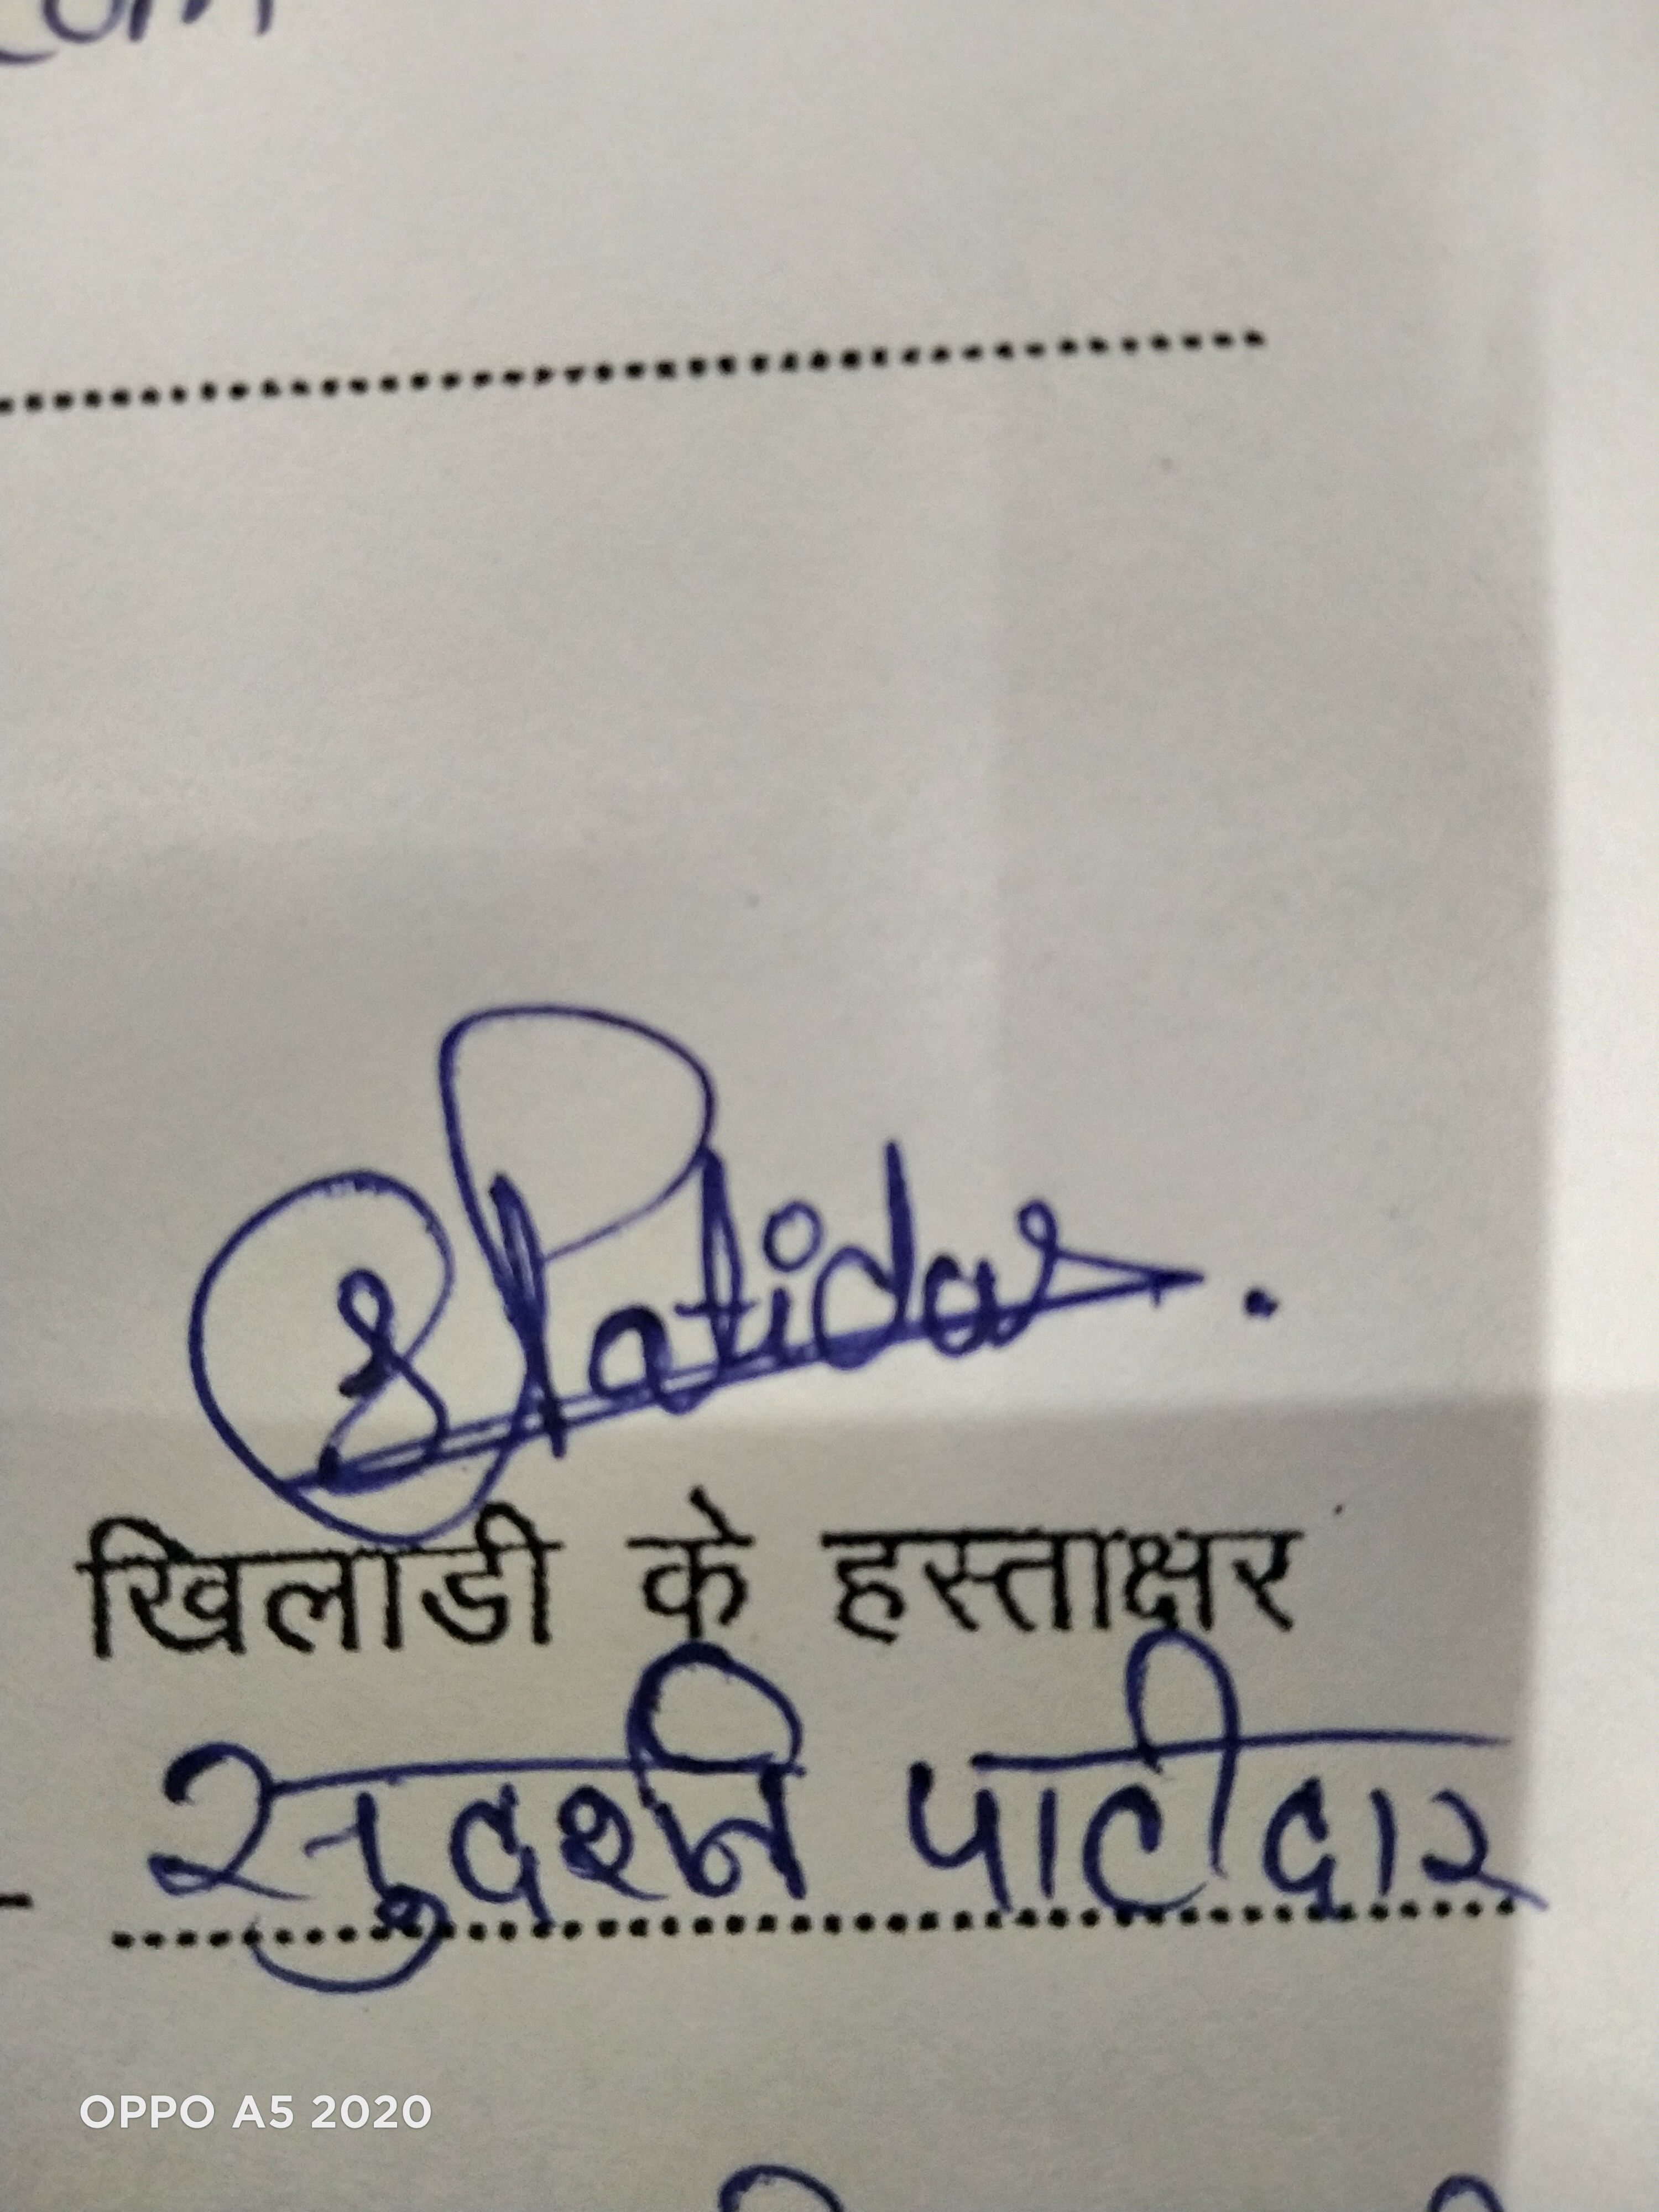 com
S Patidar.
खिलाडी के हस्ताक्षर
सुदर्शन पाटीदार
OPPO A5 2020